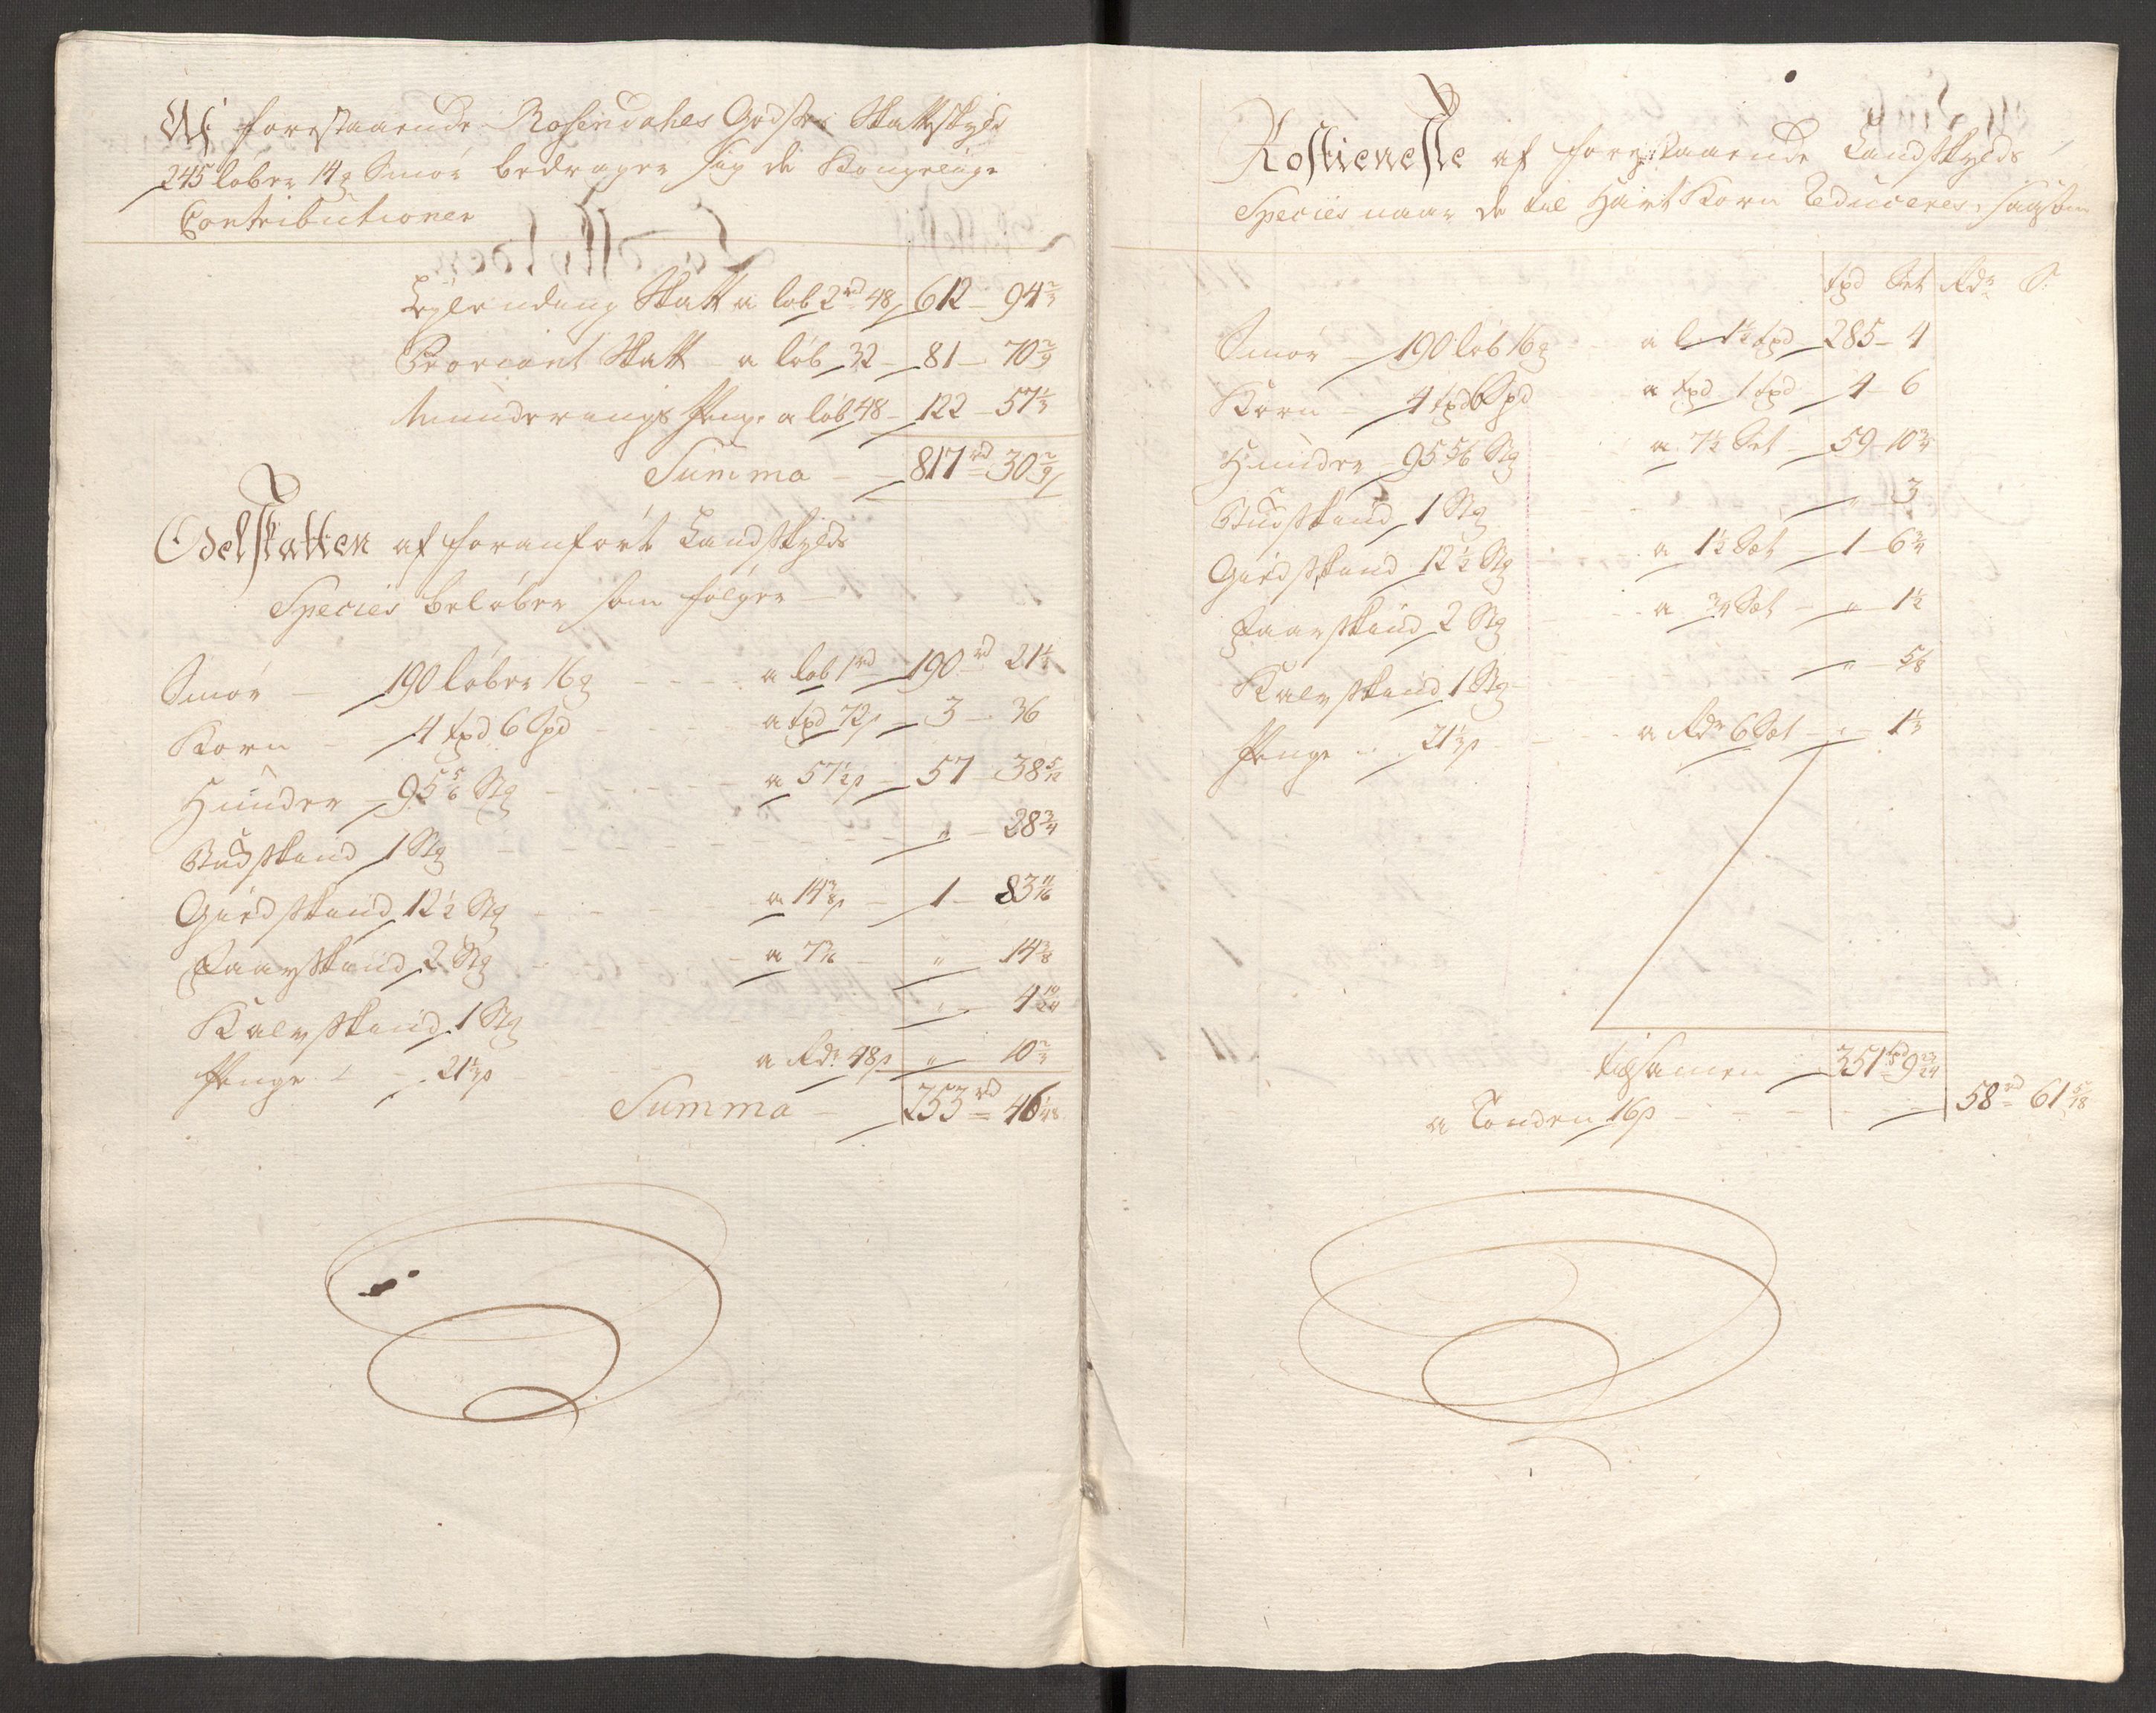 Af forestaaende Rosendahls Godses Skattskyld
245 løber 14 ₰ Smør bedrager sig de Kongelige
Contributioner
Leylendings Skatt a løb 2 rd 48 s 612 – 94 2/3
Proviant Skatt – a løb 32 – 81 – 70 2/9
Munderings Penge a løb 48 – 122 – 57 1/3
Summa – 817 rd 30 2/9 s
Odelskatten af foranført Landskylds
Species beløber som følger –
Smør – 190 løber 16 ₰ – a løb 1 rd – 190 rd 21 1/3
Korn – 4 tpd 6 Spd – a tpd 72 s – 3 – 36
Huuder – 95 5/6 Stk – a 57 1/2 s – 57 – 38 5/12
Buckskind 1 Stk – „ – 28 3/4
Giedskind 12 1/2 Stk – a 14 3/8 s – 1 – 83 11/16
Faarskind 2 Stk a 7 3/16 „ 14 3/8
Kalvskind 1 Stk „ 4 19/24
Penge – 21 1/3 s a Rdr 48 s „ 10 2/3
Summa – 253 rd 46 1/48
Rostieneste af forestaaende Landskylds
Species naar de til Hart Korn Reduceres, saasom
tpd Set Rdr S.
Smør – 190 løb 16 ₰ a l. 1 1/2 tpd – 285 – 4
Korn – 4 tpd 6 Spd a tpd 1 tpd – 4 – 6
Huuder – 95 5/6 Stk a 7 1/2 Set – 59 – 10 3/4
Buckskind 1 Stk – „ 3
Giedskind 12 1/2 Stk – a 1 1/2 Set – 1 – 6 3/4
Faarskind 2 Stk – a 3/4 Set – „ – 1 1/2
Kalvskind 1 Stk – „ – 5/8
Penge – 21 1/3 s – a Rdr 6 Set – „ – 1 1/3
tilsamen – 351 tpd 9 23/24
a Tønden 16 s – 58 rd 61 5/18